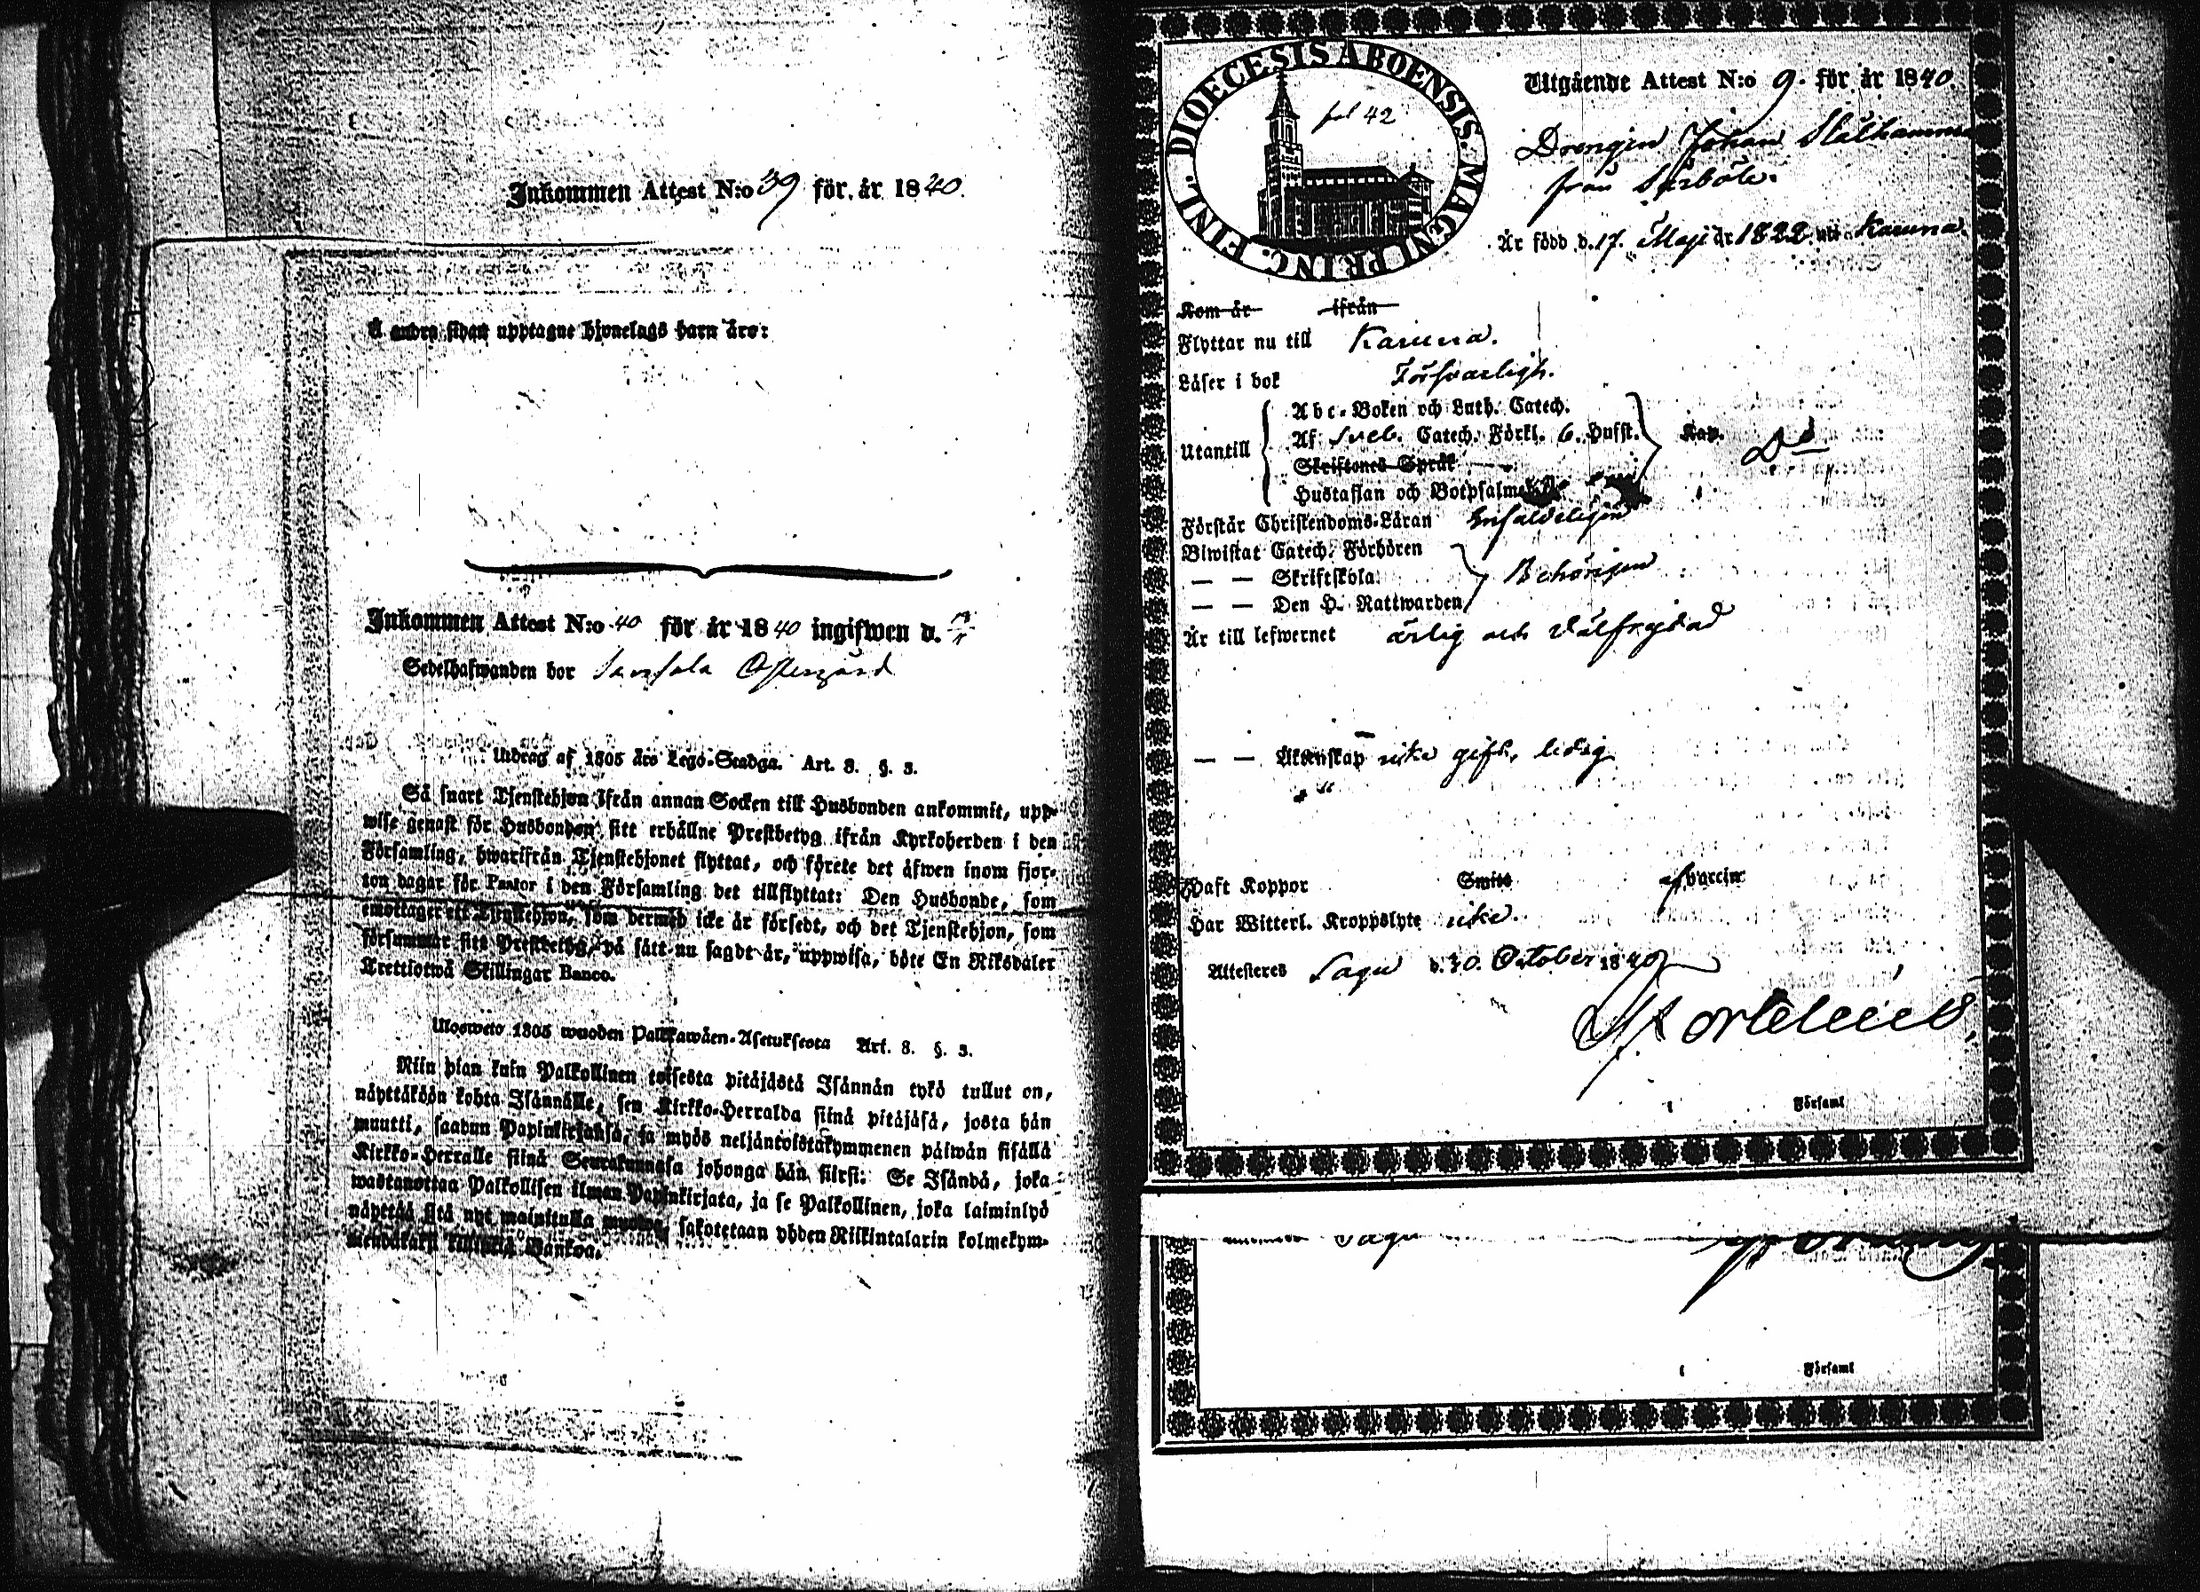 Inkommen Attest N:o 39 för år 1840.
Å andra sidan upptagne hjonelags barn äro:
Inkommen Attest N:o 40 för år 1840 ingifwen d.
Sedelhafwanden bor Östergård
Utdrag af 1805 års Lego-Stadga. Art. 8. §. 3.
Så snart Tjenstehjon ifrån annan Socken till Husbonden ankommit, upp-
wise genast för Husbonden sitt erhållne Prestbetyg ifrån Kyrkoherden i den
Församling, hwarifrån Tjenstehjonet flyttat, och förete det äfwen inom fjor-
ton dagar för Pastor i den Församling det tillflyttat: Den Husbonde, som
emottager ett Tjenstehjon, som dermed icke är försedt, och det Tjenstehjon, som
försummar sitt Prestbetyg, på sätt nu sagdt är, uppwisa, böte En Riksdaler
Trettiotwå Skillingar Banco.
Ulosweto 1805 wuoden Palkkawäen-Asetuksesta Art. 8. §. 3.
Niin pian kuin Palkollinen toisesta pitäjästä Isännän tykö tullut on,
näyttäköön kohta Isännälle, sen Kirkko-Herralda siinä pitäjäsä, josta hän
muutti, saadun Papinkirjansa, ja myös neljäntoistakymmenen päiwän sisällä
Kirkko-Herralle siinä Seurakunnasa johonga hän siirsi: Se Isändä, joka
wastanottaa Palkollisen ilman Papinkirjata, ja se Palkollinen, joka laiminlyö
näyttää sitä nyt mainitulla muotoa, sakotetaan yhden Riikintalarin kolmekym-
mendäkaksi killingiä Bankoa.
DIOECESIS ABOENSIS. MAGNI PRINC. FINL.
fol 42
Utgående Attest N:o 9. för år 1840.
Drengen Johan Stålhammar
från
Är född d. 17. Maji år 1822. uti Karuna
Kom år ifrån
Flyttar nu till Karuna.
Läser i bok Försvarligt.
Utantill
Abc-Boken och Luth. Catech.
Af Sveb. Catech. Förkl. 6. Hufst. Kap.
Skriftenes Språk
Hustaflan och Botpsalme
Förstår Christendoms-Läran Enfaldeligen
Biwistat Catech. Förhören
— — Skriftskola Behörigen
— — Den H. Nattwarden
Är till lefwernet ärlig och välfrejdad
— — Äktenskap icke gift, ledig
Haft Koppor Smitt af Vaccin
Har Witterl. Kroppslyte icke.
Attesteres Sagu d. 30. October 1840
Församl
Sagu
Församl